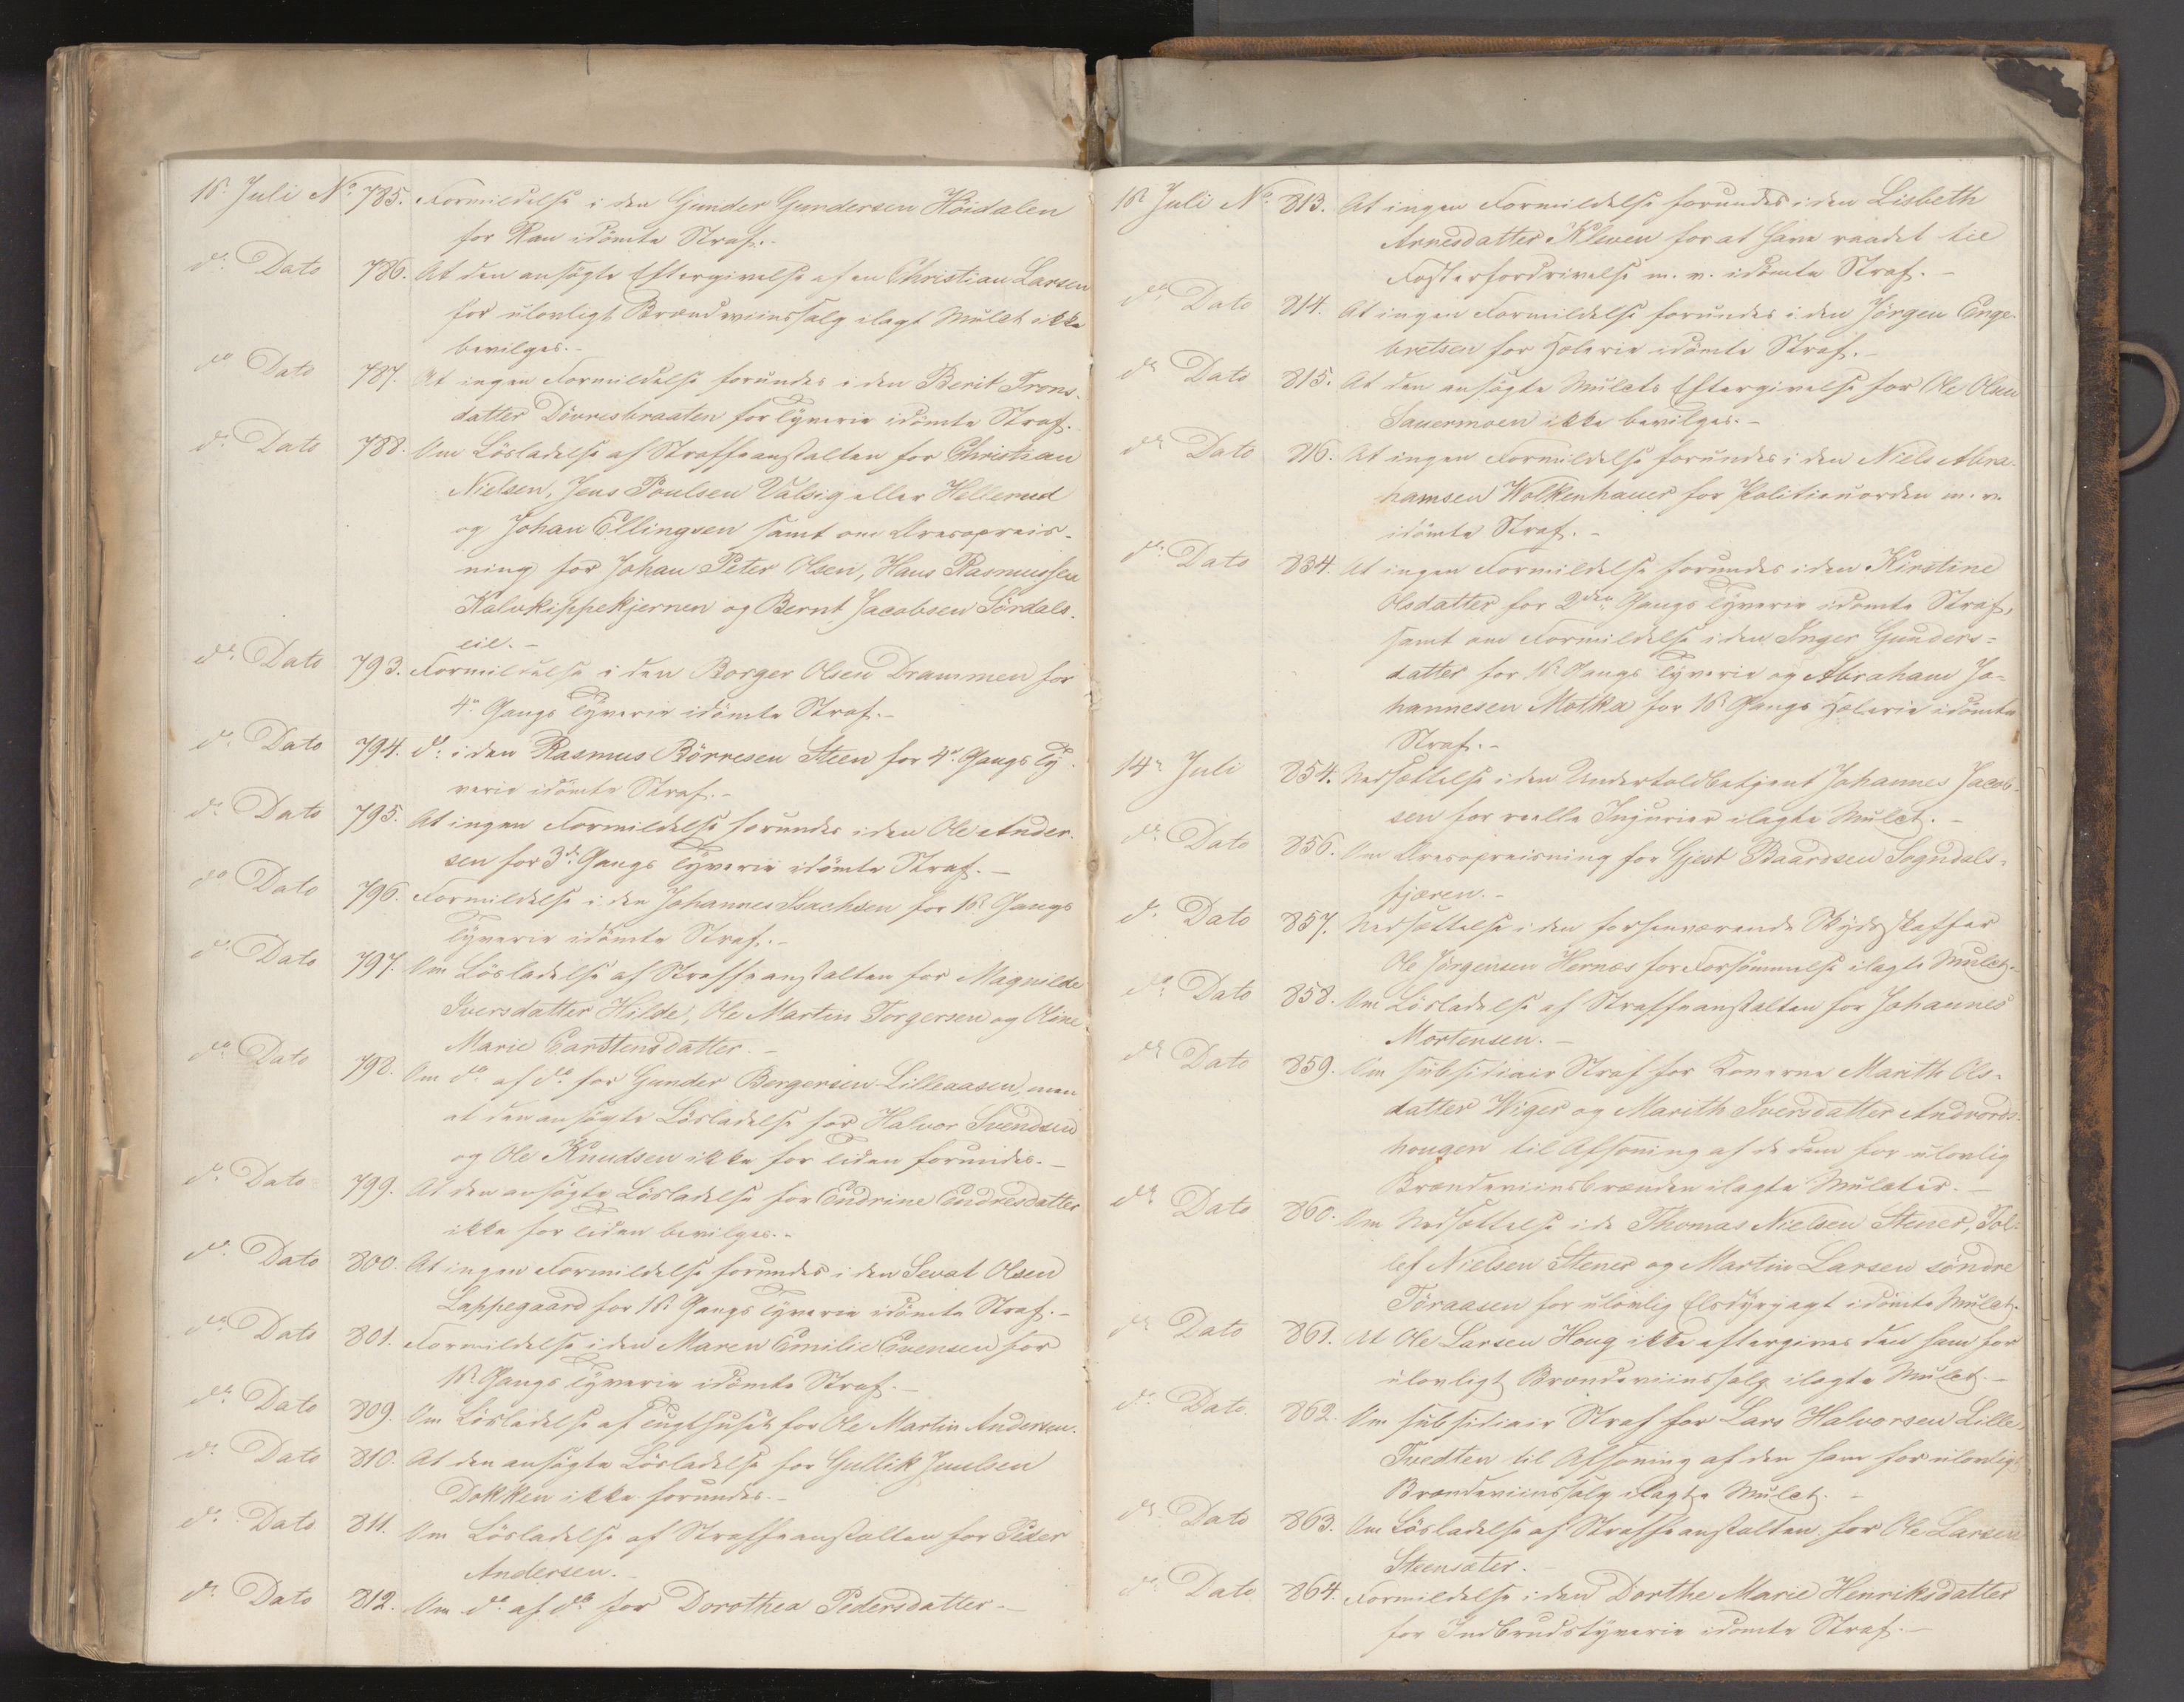 1ste Juli No 785. Formildelse i den Gunder Gundersen Höidalen
for Ran idömte Straf.-
do Dato 786. At den ansögte Eftergivelse af en Christian Larsen
for ulovligt Brændeviinssalg ilagt Mulct ikke
bevilges.-
do Dato 787. At ingen Formildelse forundes i den Berit Trons-
datter Dövresbraaten for Tyverie idömte Straf.
do Dato 788. Om Lösladelse af Straffeanstalten for Christian
Nielsen, Jens Poulsen Valsig eller Hellerud
og Johan Ellingsen samt om Æresopreis-
ning for Johan Peter Olsen, Hans Rasmussen
Kalvkippekjernen og Bernt Jacobsen Sördals-
eie.-
do Dato 793. Formildelse i den Borger Olsen Drammen for
4de Gangs Tyverie idömte Straf.-
do Dato 794. do i den Rasmus Börresen Steen for 4de Gangs Ty-
verie idömte Straf.-
do Dato 795. At ingen Formildelse forundes i den Ole Ander-
sen for 3die Gangs Tyverie idömte Straf.-
do Dato 796. Formildelse i den Johannes Isachsen for 1ste Gangs
Tyverie idömte Straf.-
do Dato 797. Om Lösladelse af Straffeanstalten for Magnilde
Iversdatter Hilde, Ole Martin Torgersen og Oline
Marie Carstensdatter.-
do Dato 798. Om do af do for Gunder Bergersen Lilleaasen, men
at den ansögte Lösladelse for Halvor Svendsen
og Ole Knudsen ikke for Tiden forundes.-
do Dato 799. At den ansögte Lösladelse for Endrine Endresdatter
ikke for Tiden bevilges.-
do Dato 800. At ingen Formildelse forundes i den Sevat Olsen
Lappegaard for 1ste Gangs Tyverie idömte Straf.-
do Dato 801. Formildelse i den Maren Emilie Evensen for
1ste Gangs Tyverie idömte Straf.-
do Dato 809. Om Lösladelse af Tugthuset for Ole Martin Andersen.
do Dato 810. At den ansögte Lösladelse for Gullik Juulsen
Dokken ikke forundes.-
do Dato 811. Om Lösladelse af Straffeanstalten for Peder
Andersen.-
do Dato 812. Om do af do for Dorothea Pedersdatter.-
1ste Juli No 813. At ingen Formildelse forundes i den Lisbeth
Arnesdatter Kleven for at have raadet til
Fosterfordrivelse m. v. idömte Straf.-
do Dato 814. At ingen Formildelse forundes i den Jörgen Enge-
bretsen for Hæleri idömte Straf.-
do Dato 815. At den ansögte Mulcts Eftergivelse for Ole Olsen
Sauermoen ikke bevilges.-
do Dato 816. At ingen Formildelse forundes i den Niels Abra-
hamsen Wolkenhauer for Politieuorden m. v.
idömte Straf.-
do Dato 834. At ingen Formildelse forundes i den Kirstine
Olsdatter for 2den Gangs Tyverie idömte Straf,
samt om Formildelse i den Inger Gunders-
datter for 1ste Gangs Tyverie og Abraham Jo-
hannesen Motka for 1ste Gangs Hælerie idömte
Straf.-
14de Juli 854. Nedsættelse i den Undertoldbetjent Johannes Jacob-
sen for reelle Injurier ilagte Mulct.-
do Dato 856. Om Æresopreisning for Gjest Baardsen Sogndals-
fjæren.-
do Dato 857. Nedsættelse i den forhenværende Skydsskaffer
Ole Jörgensen Hernæs for Forsömmelse ilagte Mulct.-
do Dato 858. Om Lösladelse af Straffeanstalten for Johannes
Mortensen.-
do Dato 859. Om subsidiair Straf for Konerne Marith Ols-
datter Wiger og Marith Iversdatter Andvords-
hougen til Afsoning af de dem for ulovlig
Brændeviinsbrænden ilagte Mulcter.-
do Dato 860. Om Nedsættelse i de Thomas Nielsen Stener, Tol-
lef Nielsen Stener og Martin Larsen söndre
Töraasen for ulovlig Elsdyrjagt idömte Mulct.
do Dato 861. At Ole Larsen Houg ikke eftergives den ham for
ulovligt Brændeviinssalg ilagte Mulct.-
do Dato 862. Om subsidiair Straf for Lars Halvorsen Lille-
Tvedten til Afsoning af den ham for ulovligt
Brændeviinssalg ilagte Mulct.-
do Dato 863. Om Lösladelse af Straffeanstalten for Ole Larsen
Steensæter.-
do Dato 864. Formildelse i den Dorthe Marie Henriksdatter
for Indbrudstyverie idömte Straf.-